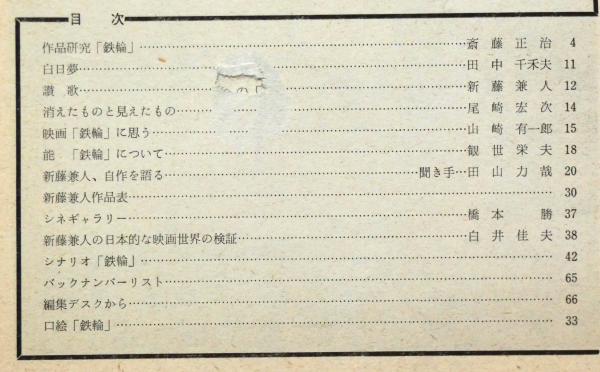 目次
作品研究「鉄輪」……斎藤正治 4
白日夢……田中千禾夫 11
讃 歌……新藤兼人 12
消えたものと見えたもの……尾崎宏次 14
映画「鉄輪」に思う……山崎有一郎 15
能 「鉄輪」について……観世栄夫 18
新藤兼人、自作を語る……聞き手…田山力哉 20
新藤兼人作品表……30
シネギャラリー……橋本勝 37
新藤兼人の日本的な映画世界の検証……白井佳夫 38
シナリオ「鉄輪」……42
バックナンバーリスト……65
編集デスクから……66
口絵「鉄輪」……33